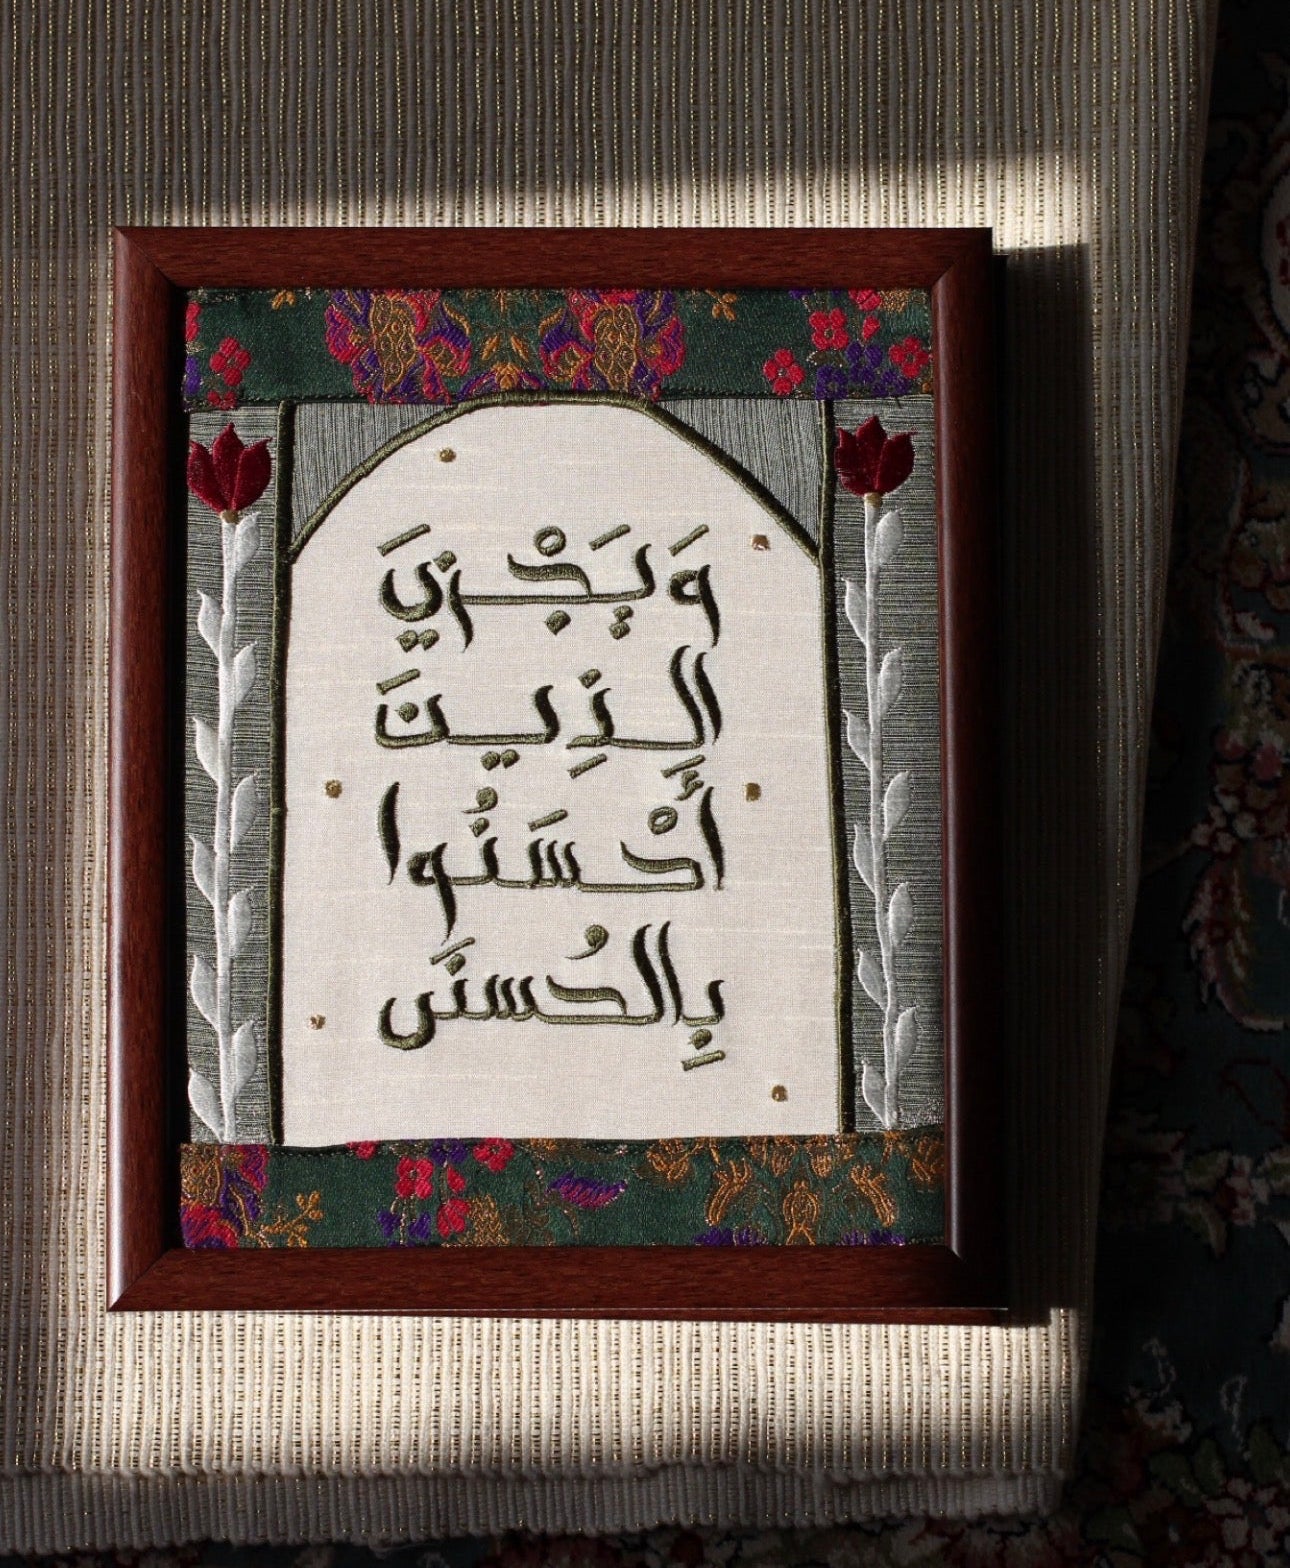 وَيَجْزِيَ
الَّذِينَ
أَحْسَنُوا
بِالْحُسْنَى